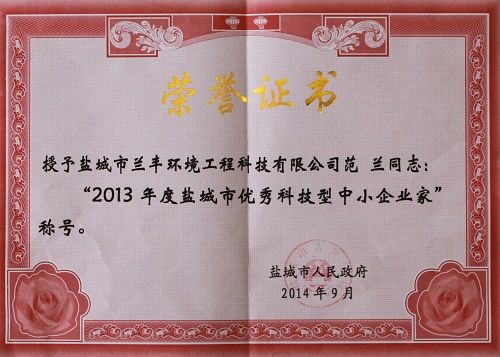 荣誉证书
授予盐城市兰丰环境工程科技有限公司范 兰同志：
“2013 年度盐城市优秀科技型中小企业家”
称号。
盐城市人民政府
2014 年 9 月